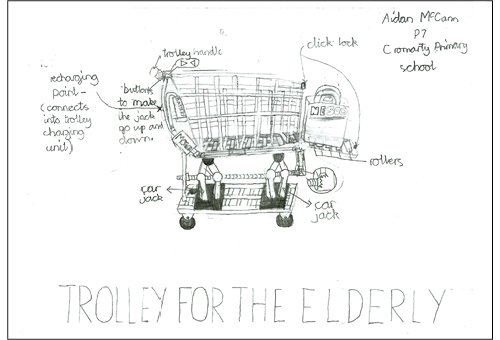 Aidan McCann
P7
Cromarty Primary
school
trolley handle
click lock
recharging
point -
(connects
into trolley
charging
unit)
buttons
to make
the jack
go up and
down.
rollers
car
jack
car
jack
TROLLEY FOR THE ELDERLY